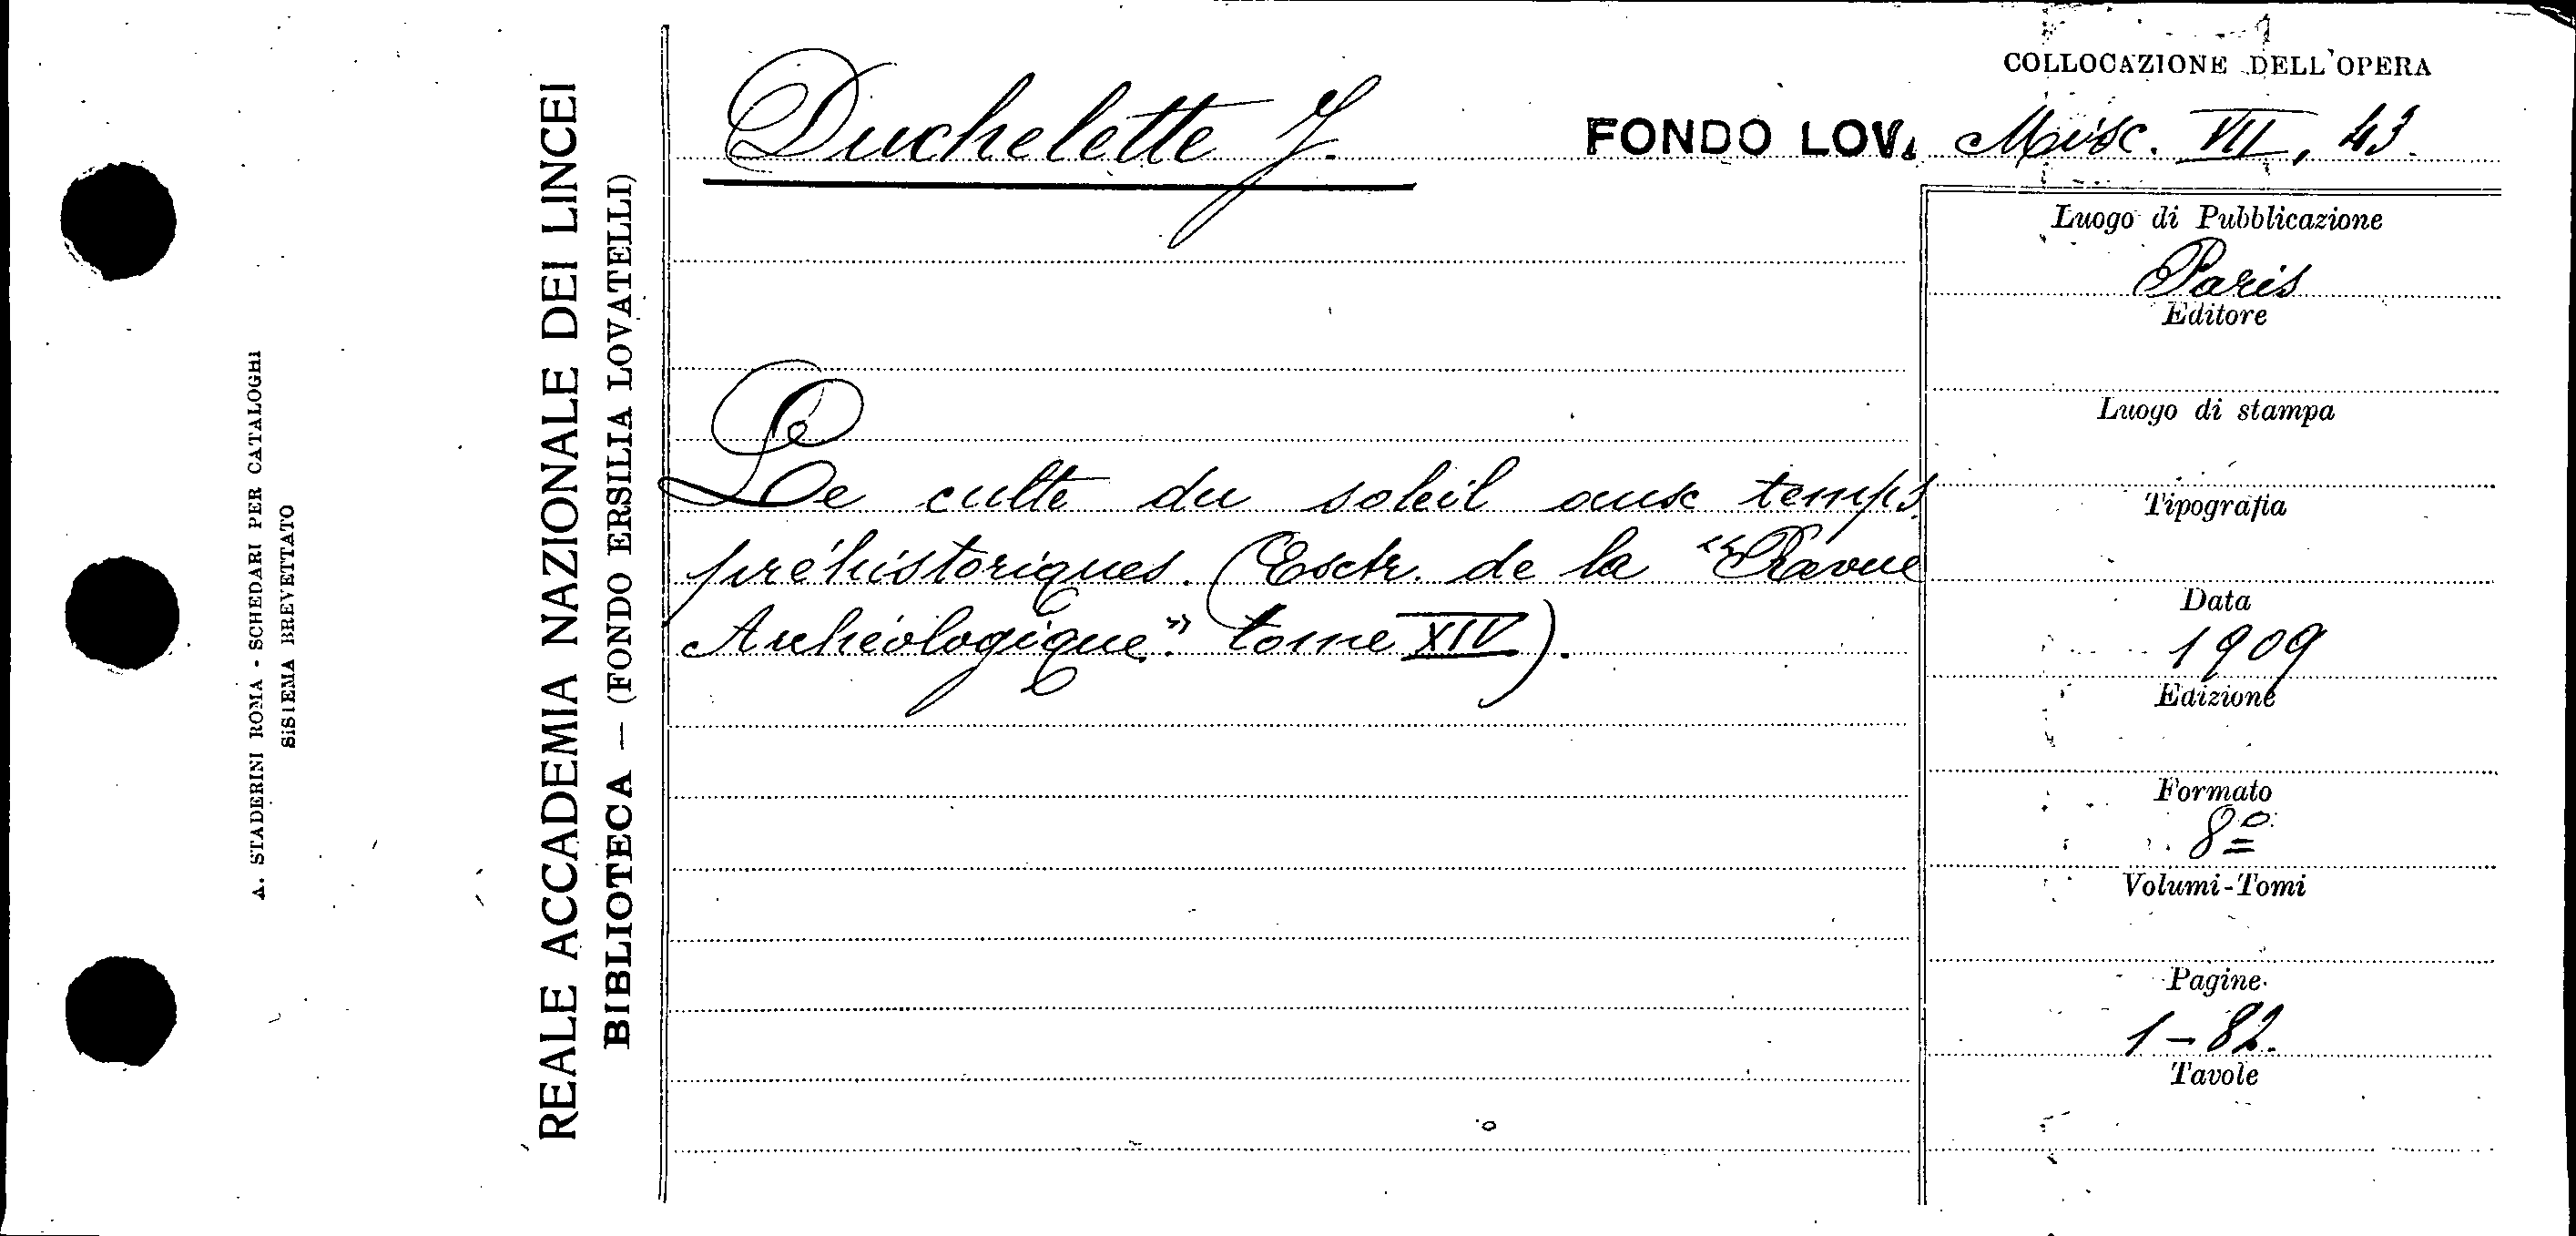 A. STADERINI ROMA - SCHEDARI PER CATALOGHI
SISTEMA BREVETTATO
REALE ACCADEMIA NAZIONALE DEI LINCEI
BIBLIOTECA — (FONDO ERSILIA LOVATELLI)
Duchelette J.
FONDO LOV.
COLLOCAZIONE DELL'OPERA
Misc. VII, 43.
Le culte du soleil aux temps
préhistoriques. (Extr. de la "Revue
Archéologique" tome XIV).
Luogo di Pubblicazione
Paris
Editore
Luogo di stampa
Tipografia
Data
1909
Edizione
Formato
8º
Volumi-Tomi
Pagine
1-82.
Tavole